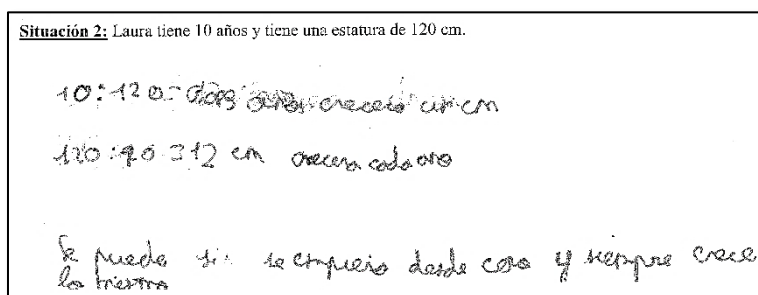 Situación 2: Laura tiene 10 años y tiene una estatura de 120 cm.
10:120= crecera un cm
120:10 = 12 cm crecera cada año
Se puede si se empieza desde cero y siempre crece
lo mismo